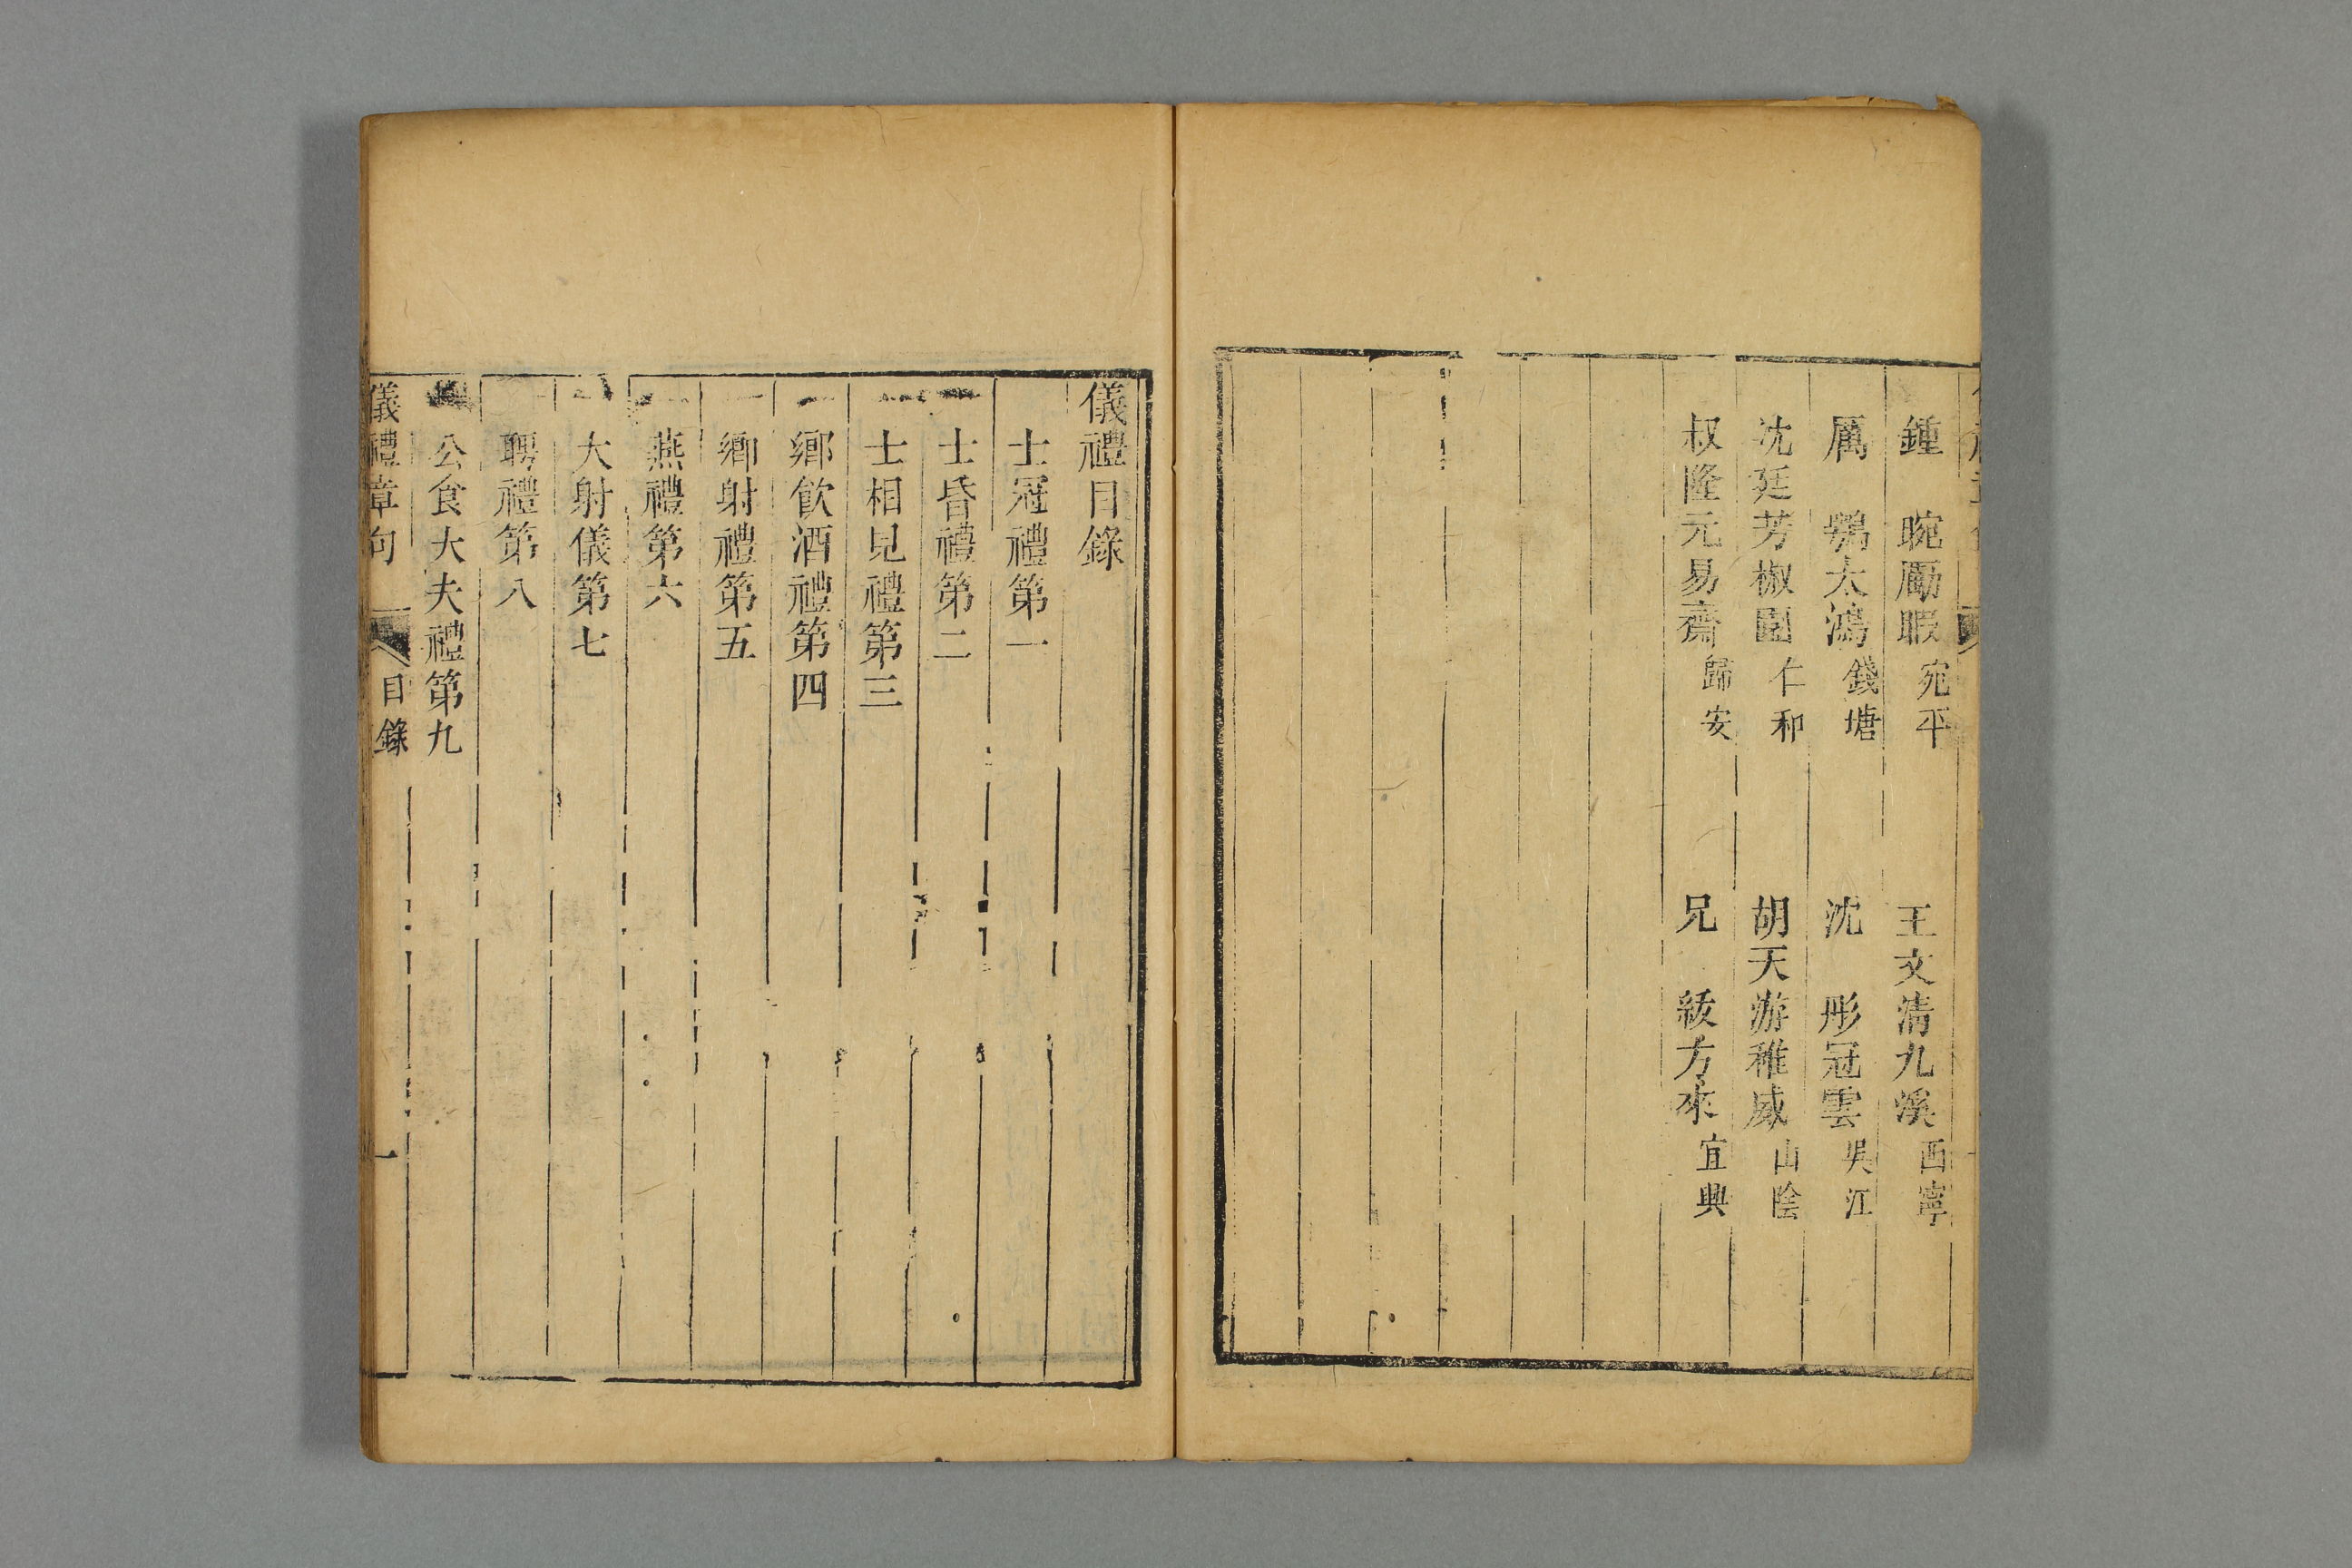 鍾 晼勵暇 宛平 王文清九溪 西寧
厲 鶚太鴻 錢塘 沈 彤冠雲 吳江
沈廷芳椒園 仁和 胡天游稚威 山陰
叔隆元易齋 歸安 兄 紱方來 宜興
儀禮目錄
士冠禮第一
士昏禮第二
士相見禮第三
鄉飲酒禮第四
鄉射禮第五
燕禮第六
大射儀第七
聘禮第八
公食大夫禮第九
儀禮章句 目錄 一